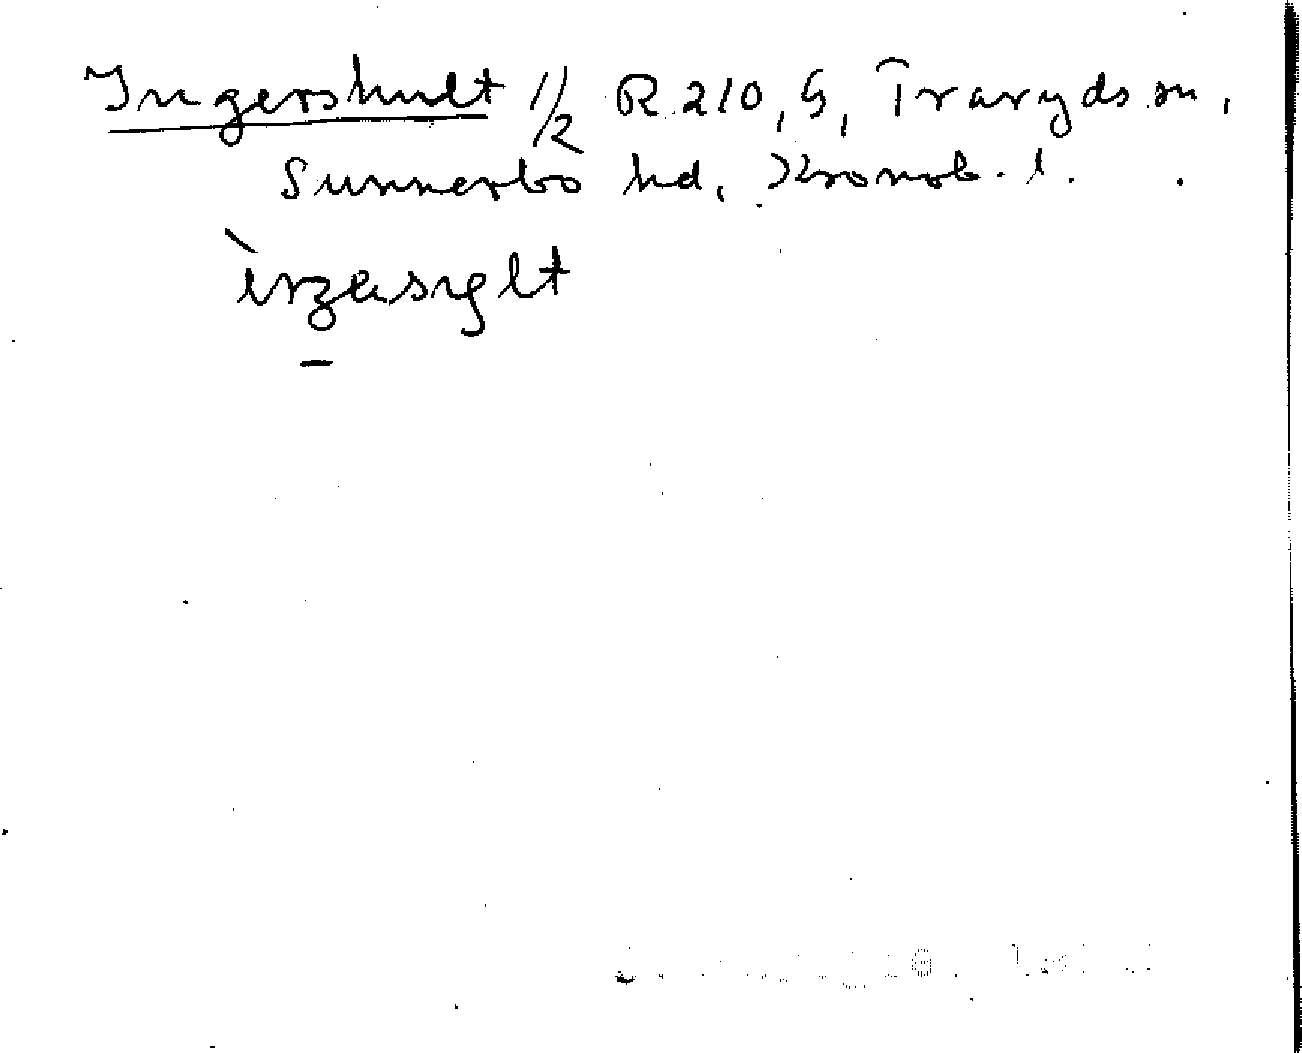 Ingershult 1/2 R 210, G, Traryds sn,
Sunnerbo hd, Kronob. l.